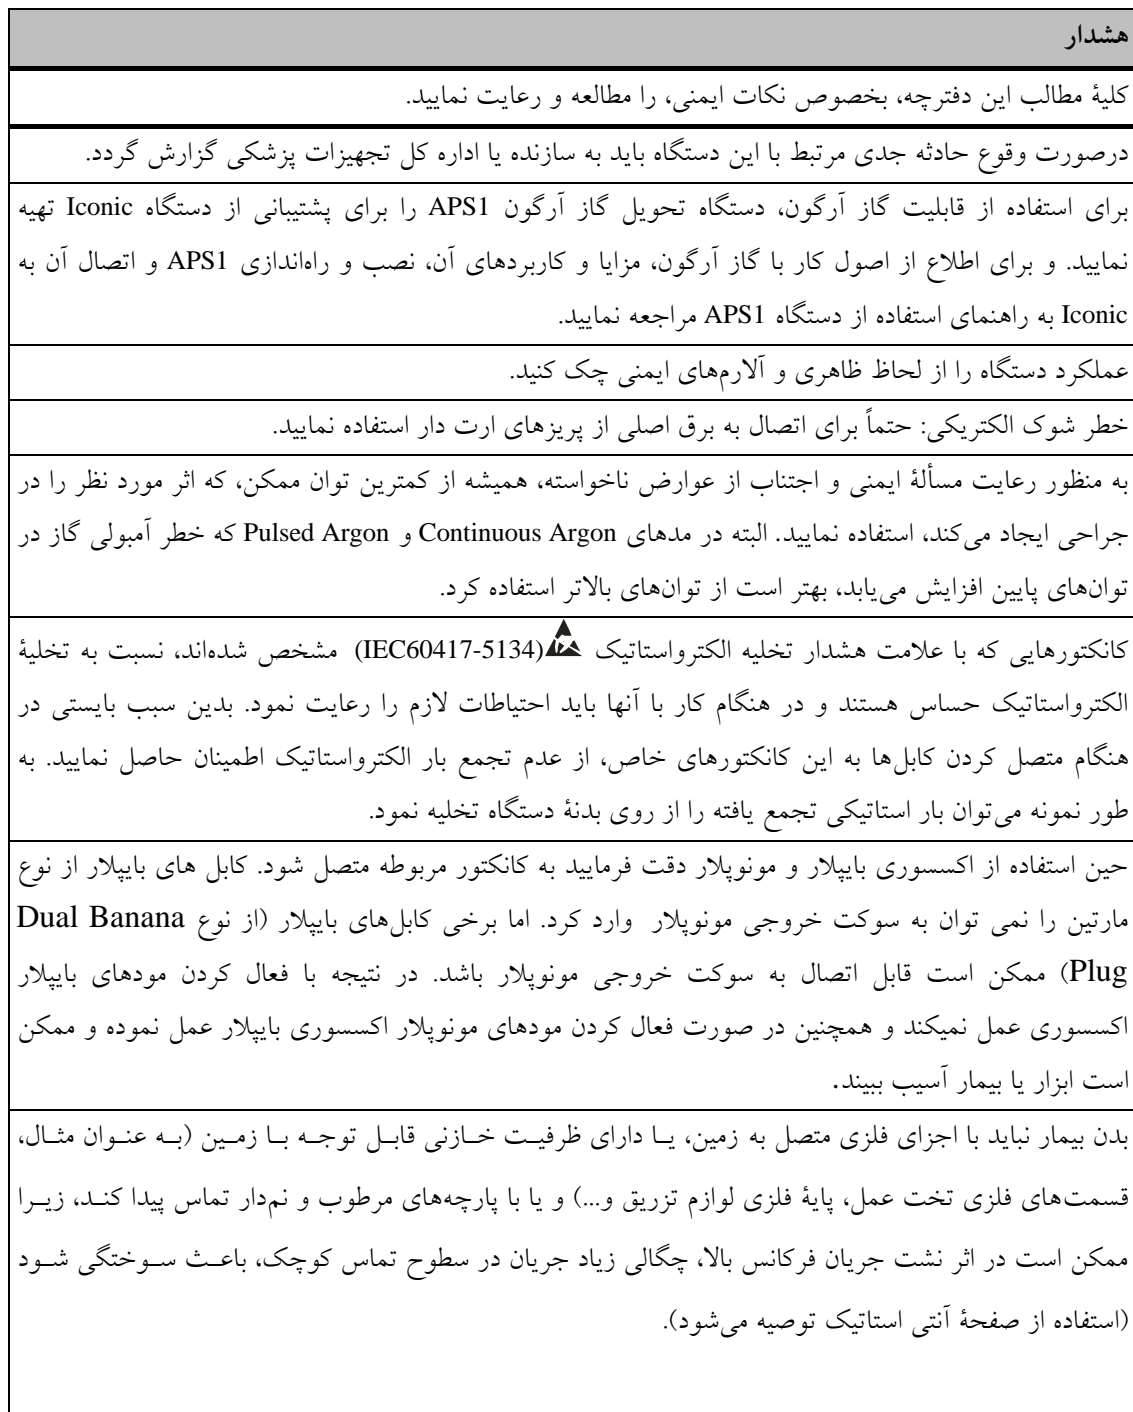 هشدار
کلیۀ مطالب این دفترچه، بخصوص نکات ایمنی، را مطالعه و رعایت نمایید.
درصورت وقوع حادثه جدی مرتبط با این دستگاه باید به سازنده یا اداره کل تجهیزات پزشکی گزارش گردد.
برای استفاده از قابلیت گاز آرگون، دستگاه تحویل گاز آرگون APS1 را برای پشتیبانی از دستگاه Iconic تهیه
نمایید. و برای اطلاع از اصول کار با گاز آرگون، مزایا و کاربردهای آن، نصب و راه‌اندازی APS1 و اتصال آن به
Iconic به راهنمای استفاده از دستگاه APS1 مراجعه نمایید.
عملکرد دستگاه را از لحاظ ظاهری و آلارم‌های ایمنی چک کنید.
خطر شوک الکتریکی: حتماً برای اتصال به برق اصلی از پریزهای ارت دار استفاده نمایید.
به منظور رعایت مسألۀ ایمنی و اجتناب از عوارض ناخواسته، همیشه از کمترین توان ممکن، که اثر مورد نظر را در
جراحی ایجاد می‌کند، استفاده نمایید. البته در مدهای Continuous Argon و Pulsed Argon که خطر آمبولی گاز در
توان‌های پایین افزایش می‌یابد، بهتر است از توان‌های بالاتر استفاده کرد.
کانکتورهایی که با علامت هشدار تخلیه الکترواستاتیک (IEC60417-5134) مشخص شده‌اند، نسبت به تخلیۀ
الکترواستاتیک حساس هستند و در هنگام کار با آنها باید احتیاطات لازم را رعایت نمود. بدین سبب بایستی در
هنگام متصل کردن کابل‌ها به این کانکتورهای خاص، از عدم تجمع بار الکترواستاتیک اطمینان حاصل نمایید. به
طور نمونه می‌توان بار استاتیکی تجمع یافته را از روی بدنۀ دستگاه تخلیه نمود.
حین استفاده از اکسسوری بایپلار و مونوپلار دقت فرمایید به کانکتور مربوطه متصل شود. کابل های بایپلار از نوع
مارتین را نمی توان به سوکت خروجی مونوپلار وارد کرد. اما برخی کابل‌های بایپلار (از نوع Dual Banana
Plug) ممکن است قابل اتصال به سوکت خروجی مونوپلار باشد. در نتیجه با فعال کردن مودهای بایپلار
اکسسوری عمل نمیکند و همچنین در صورت فعال کردن مودهای مونوپلار اکسسوری بایپلار عمل نموده و ممکن
است ابزار یا بیمار آسیب ببیند.
بدن بیمار نباید با اجزای فلزی متصل به زمین، یـا دارای ظرفیـت خـازنی قابـل توجـه بـا زمـین (بـه عنـوان مثـال،
قسمت‌های فلزی تخت عمل، پایۀ فلزی لوازم تزریق و...) و یا با پارچه‌های مرطوب و نم‌دار تماس پیدا کنـد، زیـرا
ممکن است در اثر نشت جریان فرکانس بالا، چگالی زیاد جریان در سطوح تماس کوچک، باعـث سـوختگی شـود
(استفاده از صفحۀ آنتی استاتیک توصیه می‌شود).